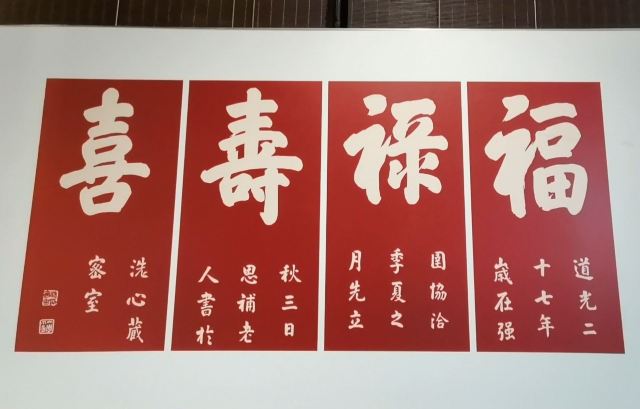 福
道光二
十七年
歲在强
祿
圉協洽
季夏之
月先立
壽
秋三日
思補老
人書於
喜
洗心藏
密室